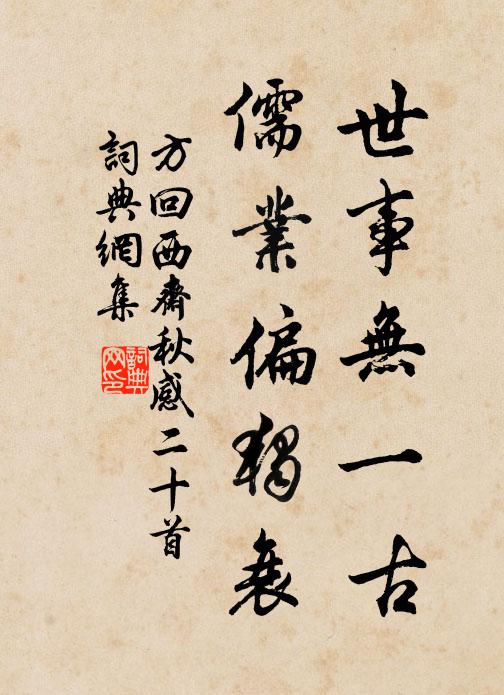 世事無一古
儒業偏獨衰
方回西齋秋感二十首
詞典網集
詞典
网印